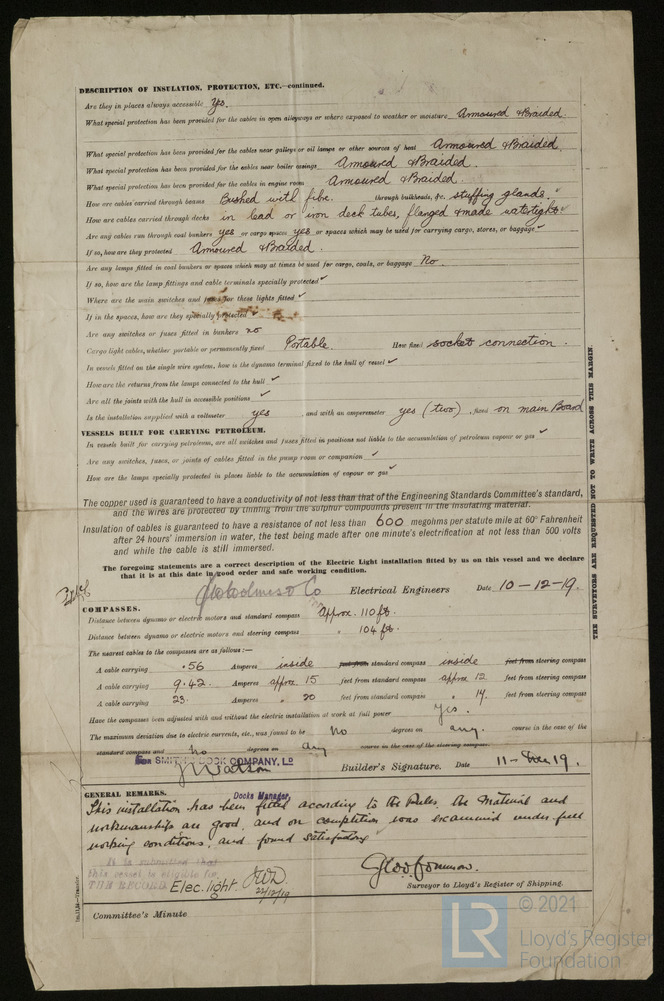 DESCRIPTION OF INSULATION, PROTECTION, ETC.—continued.
Are they in places always accessible Yes.
What special protection has been provided for the cables in open alleyways or where exposed to weather or moisture Armoured & Braided.
What special protection has been provided for the cables near galleys or oil lamps or other sources of heat Armoured & Braided.
What special protection has been provided for the cables near boiler casings Armoured & Braided.
What special protection has been provided for the cables in engine room Armoured & Braided.
How are cables carried through beams Bushed with fibre. through bulkheads, &c. stuffing glands. ✓
How are cables carried through decks in lead or iron deck tubes, flanged & made watertight ✓
Are any cables run through coal bunkers yes or cargo spaces yes or spaces which may be used for carrying cargo, stores, or baggage ✓
If so, how are they protected Armoured & Braided.
Are any lamps fitted in coal bunkers or spaces which may at times be used for cargo, coals, or baggage No.
If so, how are the lamp fittings and cable terminals specially protected ✓
Where are the main switches and fuses for these lights fitted ✓
If in the spaces, how are they specially protected ✓
Are any switches or fuses fitted in bunkers no
Cargo light cables, whether portable or permanently fixed Portable. How fixed socket connection.
In vessels fitted on the single wire system, how is the dynamo terminal fixed to the hull of vessel ✓
How are the returns from the lamps connected to the hull ✓
Are all the joints with the hull in accessible positions ✓
Is the installation supplied with a voltmeter yes and with an amperemeter yes (two), fixed on main Board
VESSELS BUILT FOR CARRYING PETROLEUM.
In vessels built for carrying petroleum, are all switches and fuses fitted in positions not liable to the accumulation of petroleum vapour or gas ✓
Are any switches, fuses, or joints of cables fitted in the pump room or companion ✓
How are the lamps specially protected in places liable to the accumulation of vapour or gas ✓
THE SURVEYORS ARE REQUESTED NOT TO WRITE ACROSS THIS MARGIN.
The copper used is guaranteed to have a conductivity of not less than that of the Engineering Standards Committee's standard,
and the wires are protected by tinning from the sulphur compounds present in the insulating material.
Insulation of cables is guaranteed to have a resistance of not less than 600 megohms per statute mile at 60° Fahrenheit
after 24 hours' immersion in water, the test being made after one minute's electrification at not less than 500 volts
and while the cable is still immersed.
The foregoing statements are a correct description of the Electric Light installation fitted by us on this vessel and we declare
that it is at this date in good order and safe working condition.
Holmes & Co Electrical Engineers Date 10-12-19.
COMPASSES.
Distance between dynamo or electric motors and standard compass Approx. 110 ft.
Distance between dynamo or electric motors and steering compass " 104 ft.
The nearest cables to the compasses are as follows:—
A cable carrying .56 Amperes inside feet from standard compass inside feet from steering compass
A cable carrying 9.42. Amperes approx 15 feet from standard compass approx 12 feet from steering compass
A cable carrying 23. Amperes " 20 feet from standard " 14. feet from steering compass
Have the compasses been adjusted with and without the electric installation at work at full power Yes.
The maximum deviation due to electric currents, etc., was found to be No degrees on any. course in the case of the
standard compass and No degrees on any course in the case of the steering compass.
FOR SMITH'S DOCK COMPANY, LD
J Watson Builder's Signature. Date 11-Dec 19.
Docks Manager
GENERAL REMARKS.
This installation has been fitted according to the Rules, the material and
workmanship are good, and on completion was examined under full
working conditions, and found satisfactory
It is submitted that
this vessel is eligible for
THE RECORD Elec. light. JWD 22/12/19
Surveyor to Lloyd's Register of Shipping.
Committee's Minute
© 2021
LR Lloyd's Register
Foundation